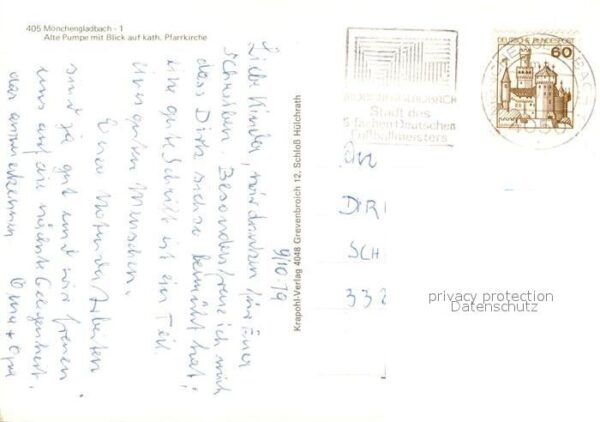 405 Mönchengladbach - 1
Alte Pumpe mit Blick auf kath. Pfarrkirche
9/10.79
Liebe Kinder, wir danken für Euer
Schreiben. Besonders freue ich mich
das Dirk sich so bemüht hat!
eine gute Schrift ist ein Teil
eines guten Menschen.
Eure Noten der Arbeiten
sind ja gut und wir freuen
uns auf die nächste Gelegenheit,
das anzuerkennen Oma + Opa
Krapohl-Verlag 4048 Grevenbroich 12, Schloß Hülchrath
MÖNCHENGLADBACH
Stadt des
5 fachen Deutschen
Fußballmeisters
DEUTSCHE BUNDESPOST
60
DIR
SCH
332
privacy protection
Datenschutz